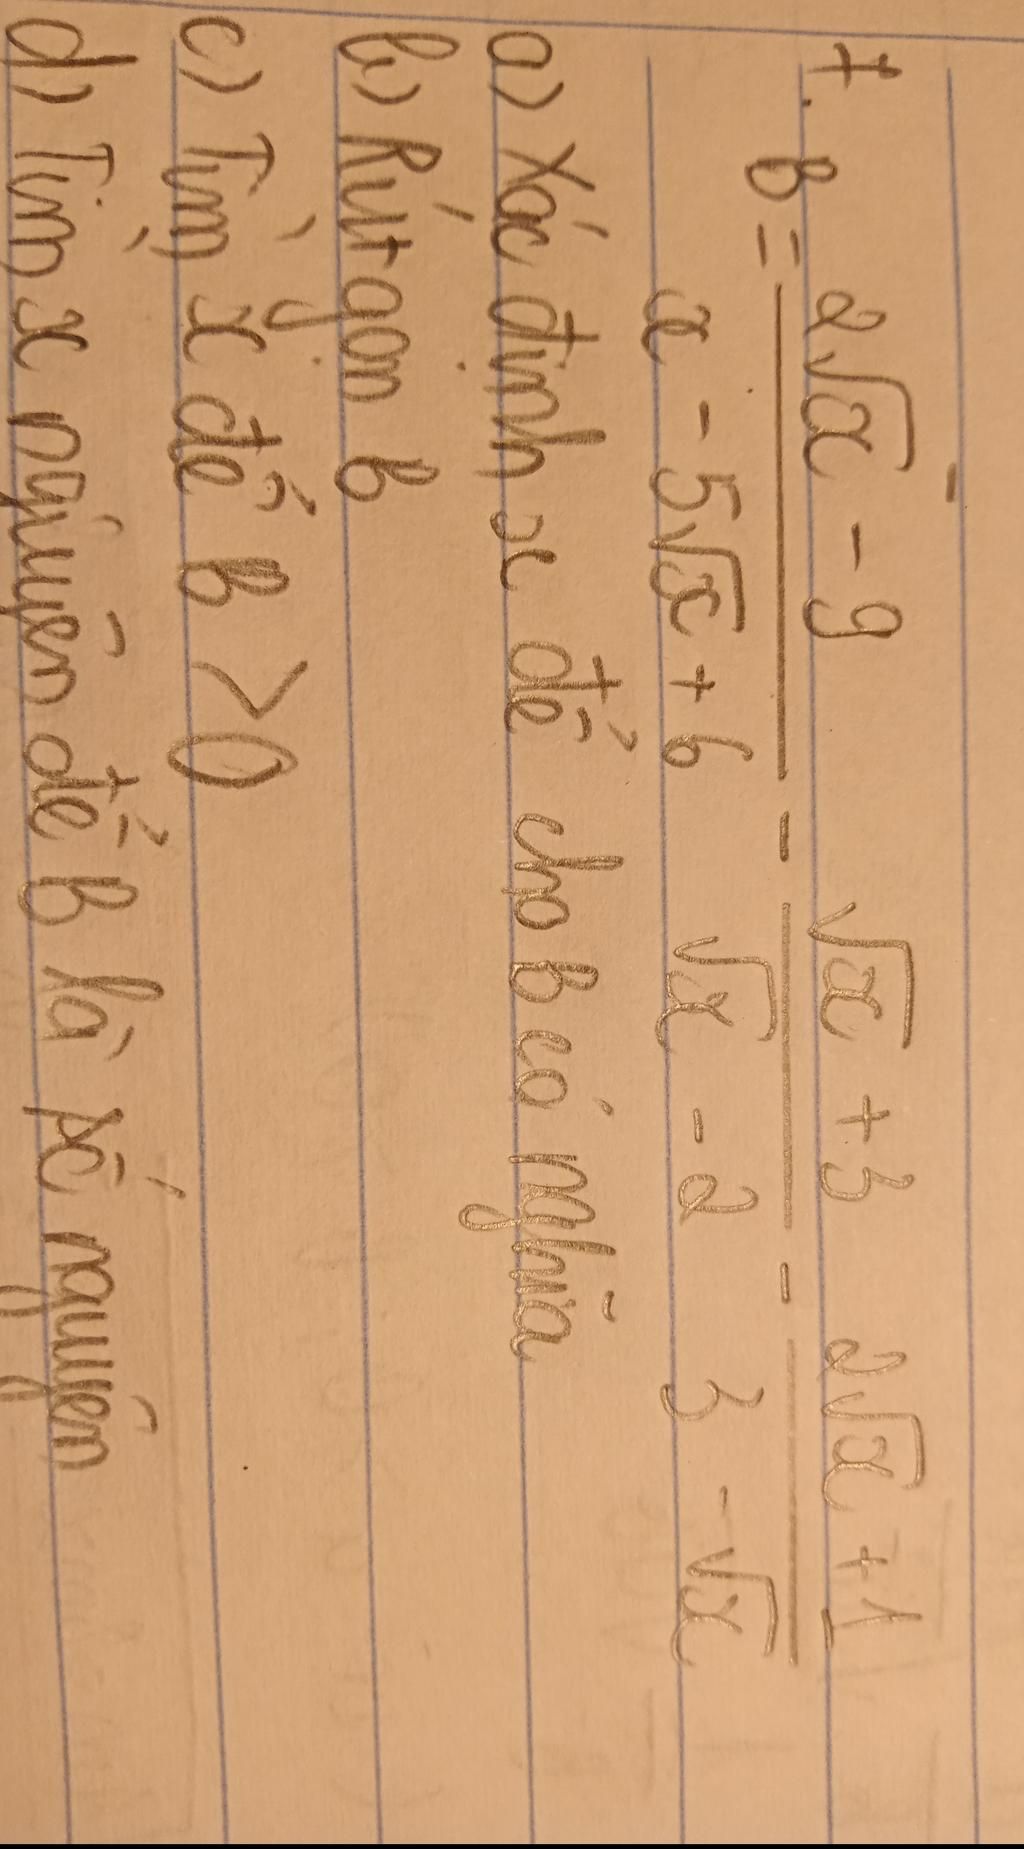 7. B = \frac{2\sqrt{x} - 9}{x - 5\sqrt{x} + 6} - \frac{\sqrt{x} + 3}{\sqrt{x} - 2} - \frac{2\sqrt{x} + 1}{3 - \sqrt{x}}
a) Xác định x để cho B có nghĩa
b) Rút gọn B
c) Tìm x để B > 0
d) Tìm x nguyên để B là số nguyên